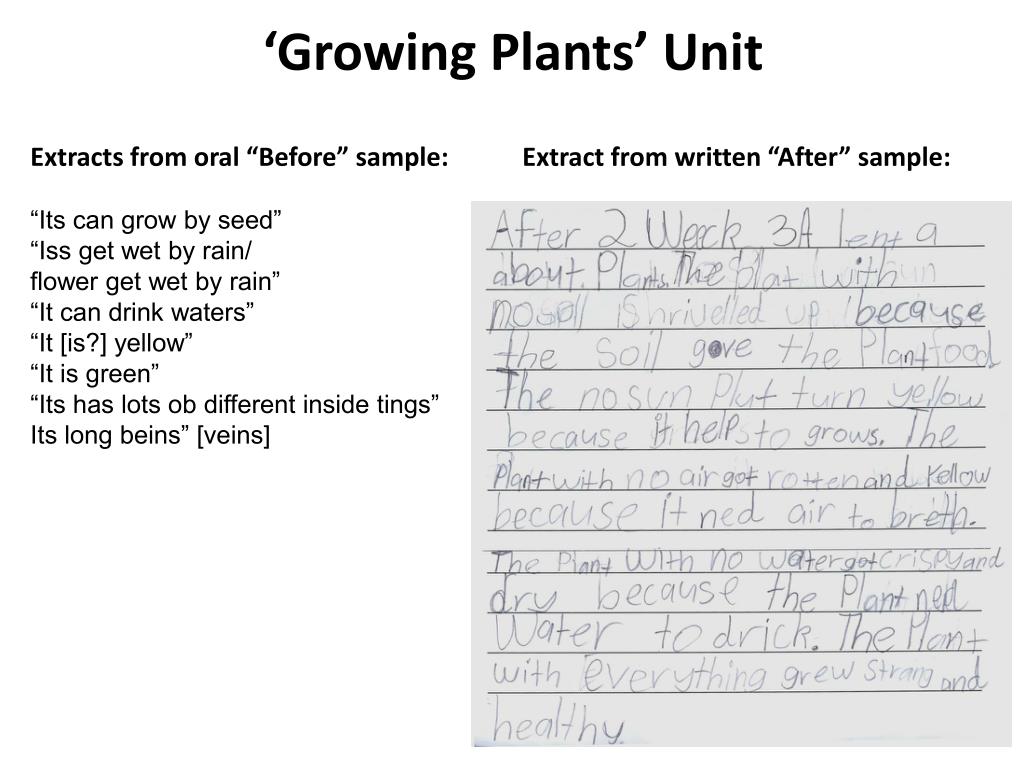 ‘Growing Plants’ Unit
Extracts from oral “Before” sample:
“Its can grow by seed”
“Iss get wet by rain/
flower get wet by rain”
“It can drink waters”
“It [is?] yellow”
“It is green”
“Its has lots ob different inside tings”
Its long beins” [veins]
Extract from written “After” sample:
After 2 Week 3A lent a
about. Plants. The plat with
no soil Shrivelled up because
the soil gave the Plant food
The no sun Plut turn yellow
because it helps to grows. The
Plant with no air got rotten and Yellow
because it ned air to breth.
The Plant With no water got crispy and
dry because the Plant ned
Water to drick. The Plant
with everything grew strang and
healthy.